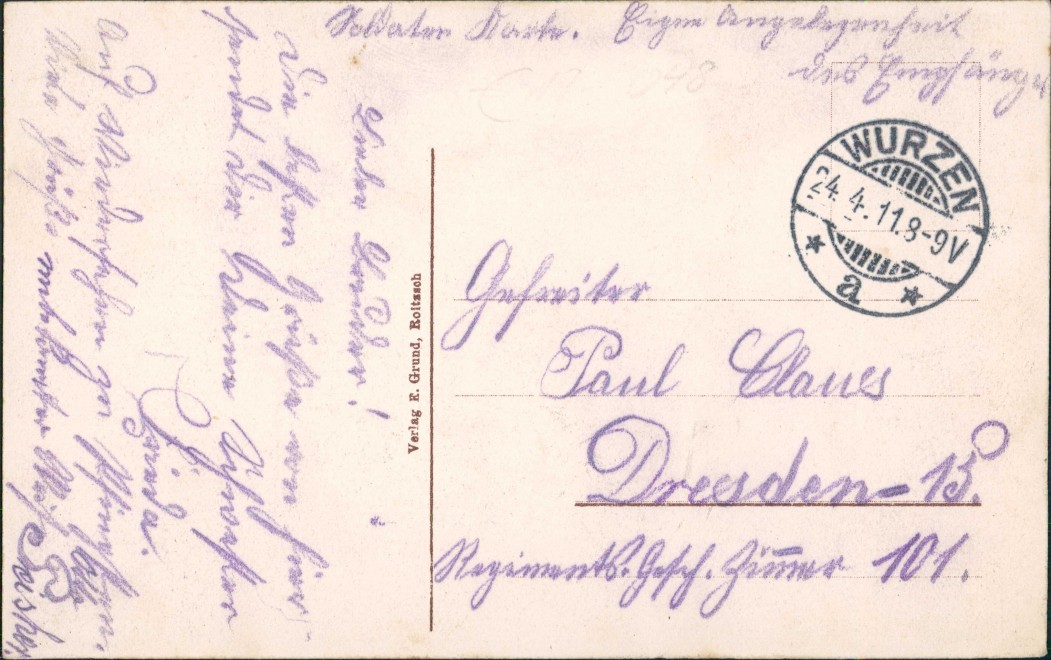 Soldaten Karte. Eigne Angelegenheit
des Empfängers
WURZEN
24.4.11.8-9V
a
Gefreiter
Paul Claus
Dresden-15.
Regiments. Gesch. Zimmer 101.
Verlag E. Grund, Roitzsch
Lieber Bruder!
Die besten Grüße von hier
sendet Dir Deine Schwester
Frieda.
Auf Wiedersehen zu
Grüße